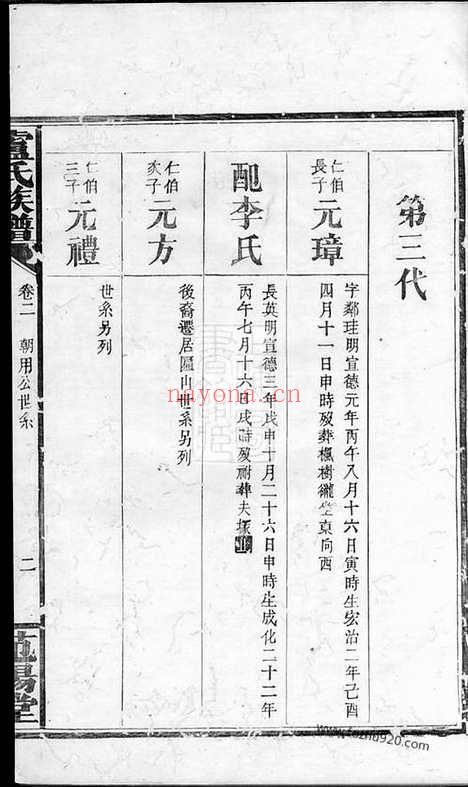 第三代
仁伯
長子
元璋
字鄰珪明宣德元年丙午八月十六日寅時生宏治二年己酉
四月十一日申時歿葬楓樹壠坐東向酉
配李氏
長英明宣德三年戊申十月二十六日申時生成化二十二年
丙午七月十六日戌時歿祔葬夫塚
仁伯
次子
元方
後裔遷居區山世系另列
仁伯
三子
元禮
世系另列
盧氏族譜
卷二
朝用公世系
二
范陽堂
nayona.cn
www.fozhu920.com